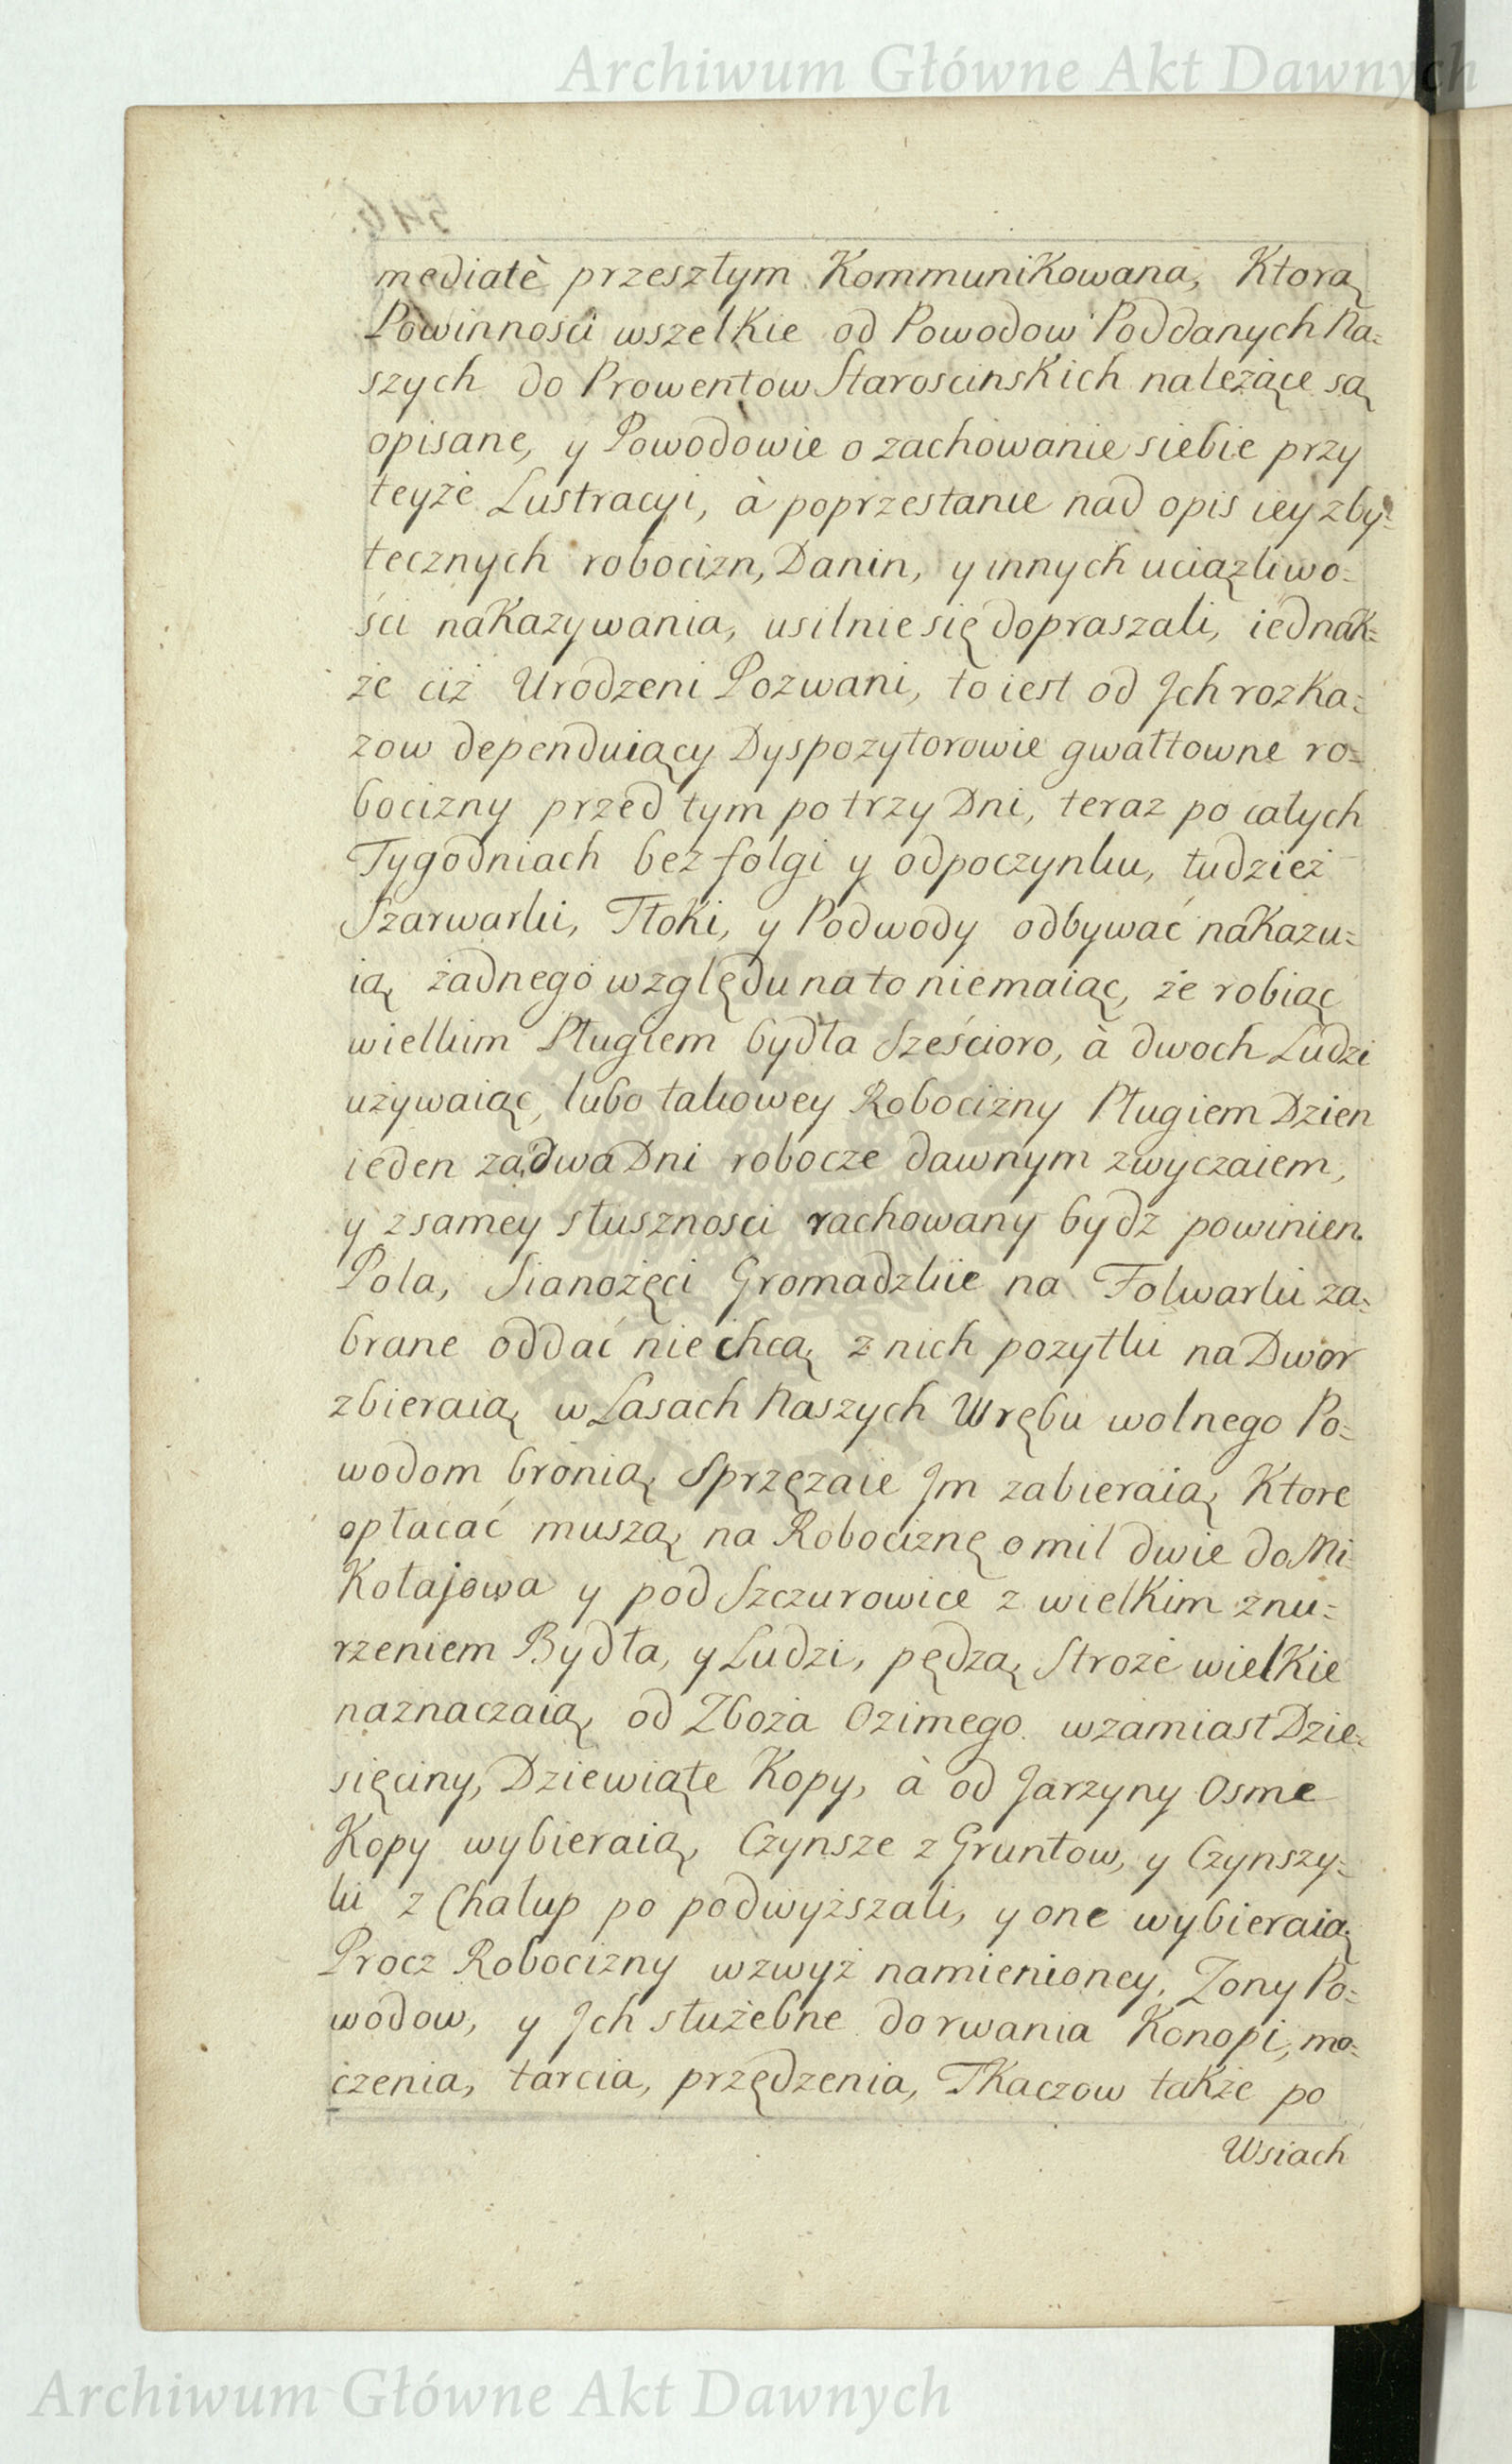 Archiwum Główne Akt Dawnych
546.
mediatè przeszłym Kommunikowana, Ktorą
Powinnosci wszelkie od Powodow Poddanych Na=
szych do Prowentow Staroscinskich należące są
opisane, y Powodowie o zachowanie siebie przy
teyże Lustracyi, à poprzestanie nad opis iey zby=
tecznych robocizn, Danin, y innych uciązliwo=
ści nakazywania, usilnie się dopraszali, iednak=
że ciż Urodzeni Pozwani, to iest od Jch rozka=
zow dependuiący Dyspozytorowie gwałtowne ro=
bocizny przed tym po trzy Dni, teraz po całych
Tygodniach bez folgi y odpoczynku, tudzież
Szarwarki, Tłoki, y Podwody odbywać nakazu=
ią, żadnego względu na to niemaiąc, że robiąc
wielkim Pługiem bydła sześcioro, à dwoch Ludzi
używaiąc, lubo takowey Robocizny Pługiem Dzien
ieden za dwa Dni robocze dawnym zwyczaiem,
y z samey słusznosci rachowany bydz powinien.
Pola, Sianożęci Gromadzkie na Folwarki za=
brane oddać nie chcą, z nich pozytki na Dwor
zbieraią, w Lasach Naszych Wrębu wolnego Po=
wodom bronią, Sprzęzaie Jm zabieraią, Ktore
opłacać muszą, na Robociznę o mil dwie do Mi=
kołajowa y pod Szczurowice z wielkim znu=
rzeniem Bydła, y Ludzi, pędzą, Stroże wielkie
naznaczaią, od Zboża Ozimego wzamiast Dzie=
sięciny, Dziewiąte Kopy, à od Jarzyny Osme
Kopy wybieraią, Czynsze z Gruntow, y Czynszy=
ki z Chalup po podwyższali, y one wybieraią,
Procz Robocizny wzwyż namienioney, Zony Po=
wodow, y Jch służebne do rwania Konopi, mo=
czenia, tarcia, przędzenia, Tkaczow także po
Wsiach
Archiwum Główne Akt Dawnych